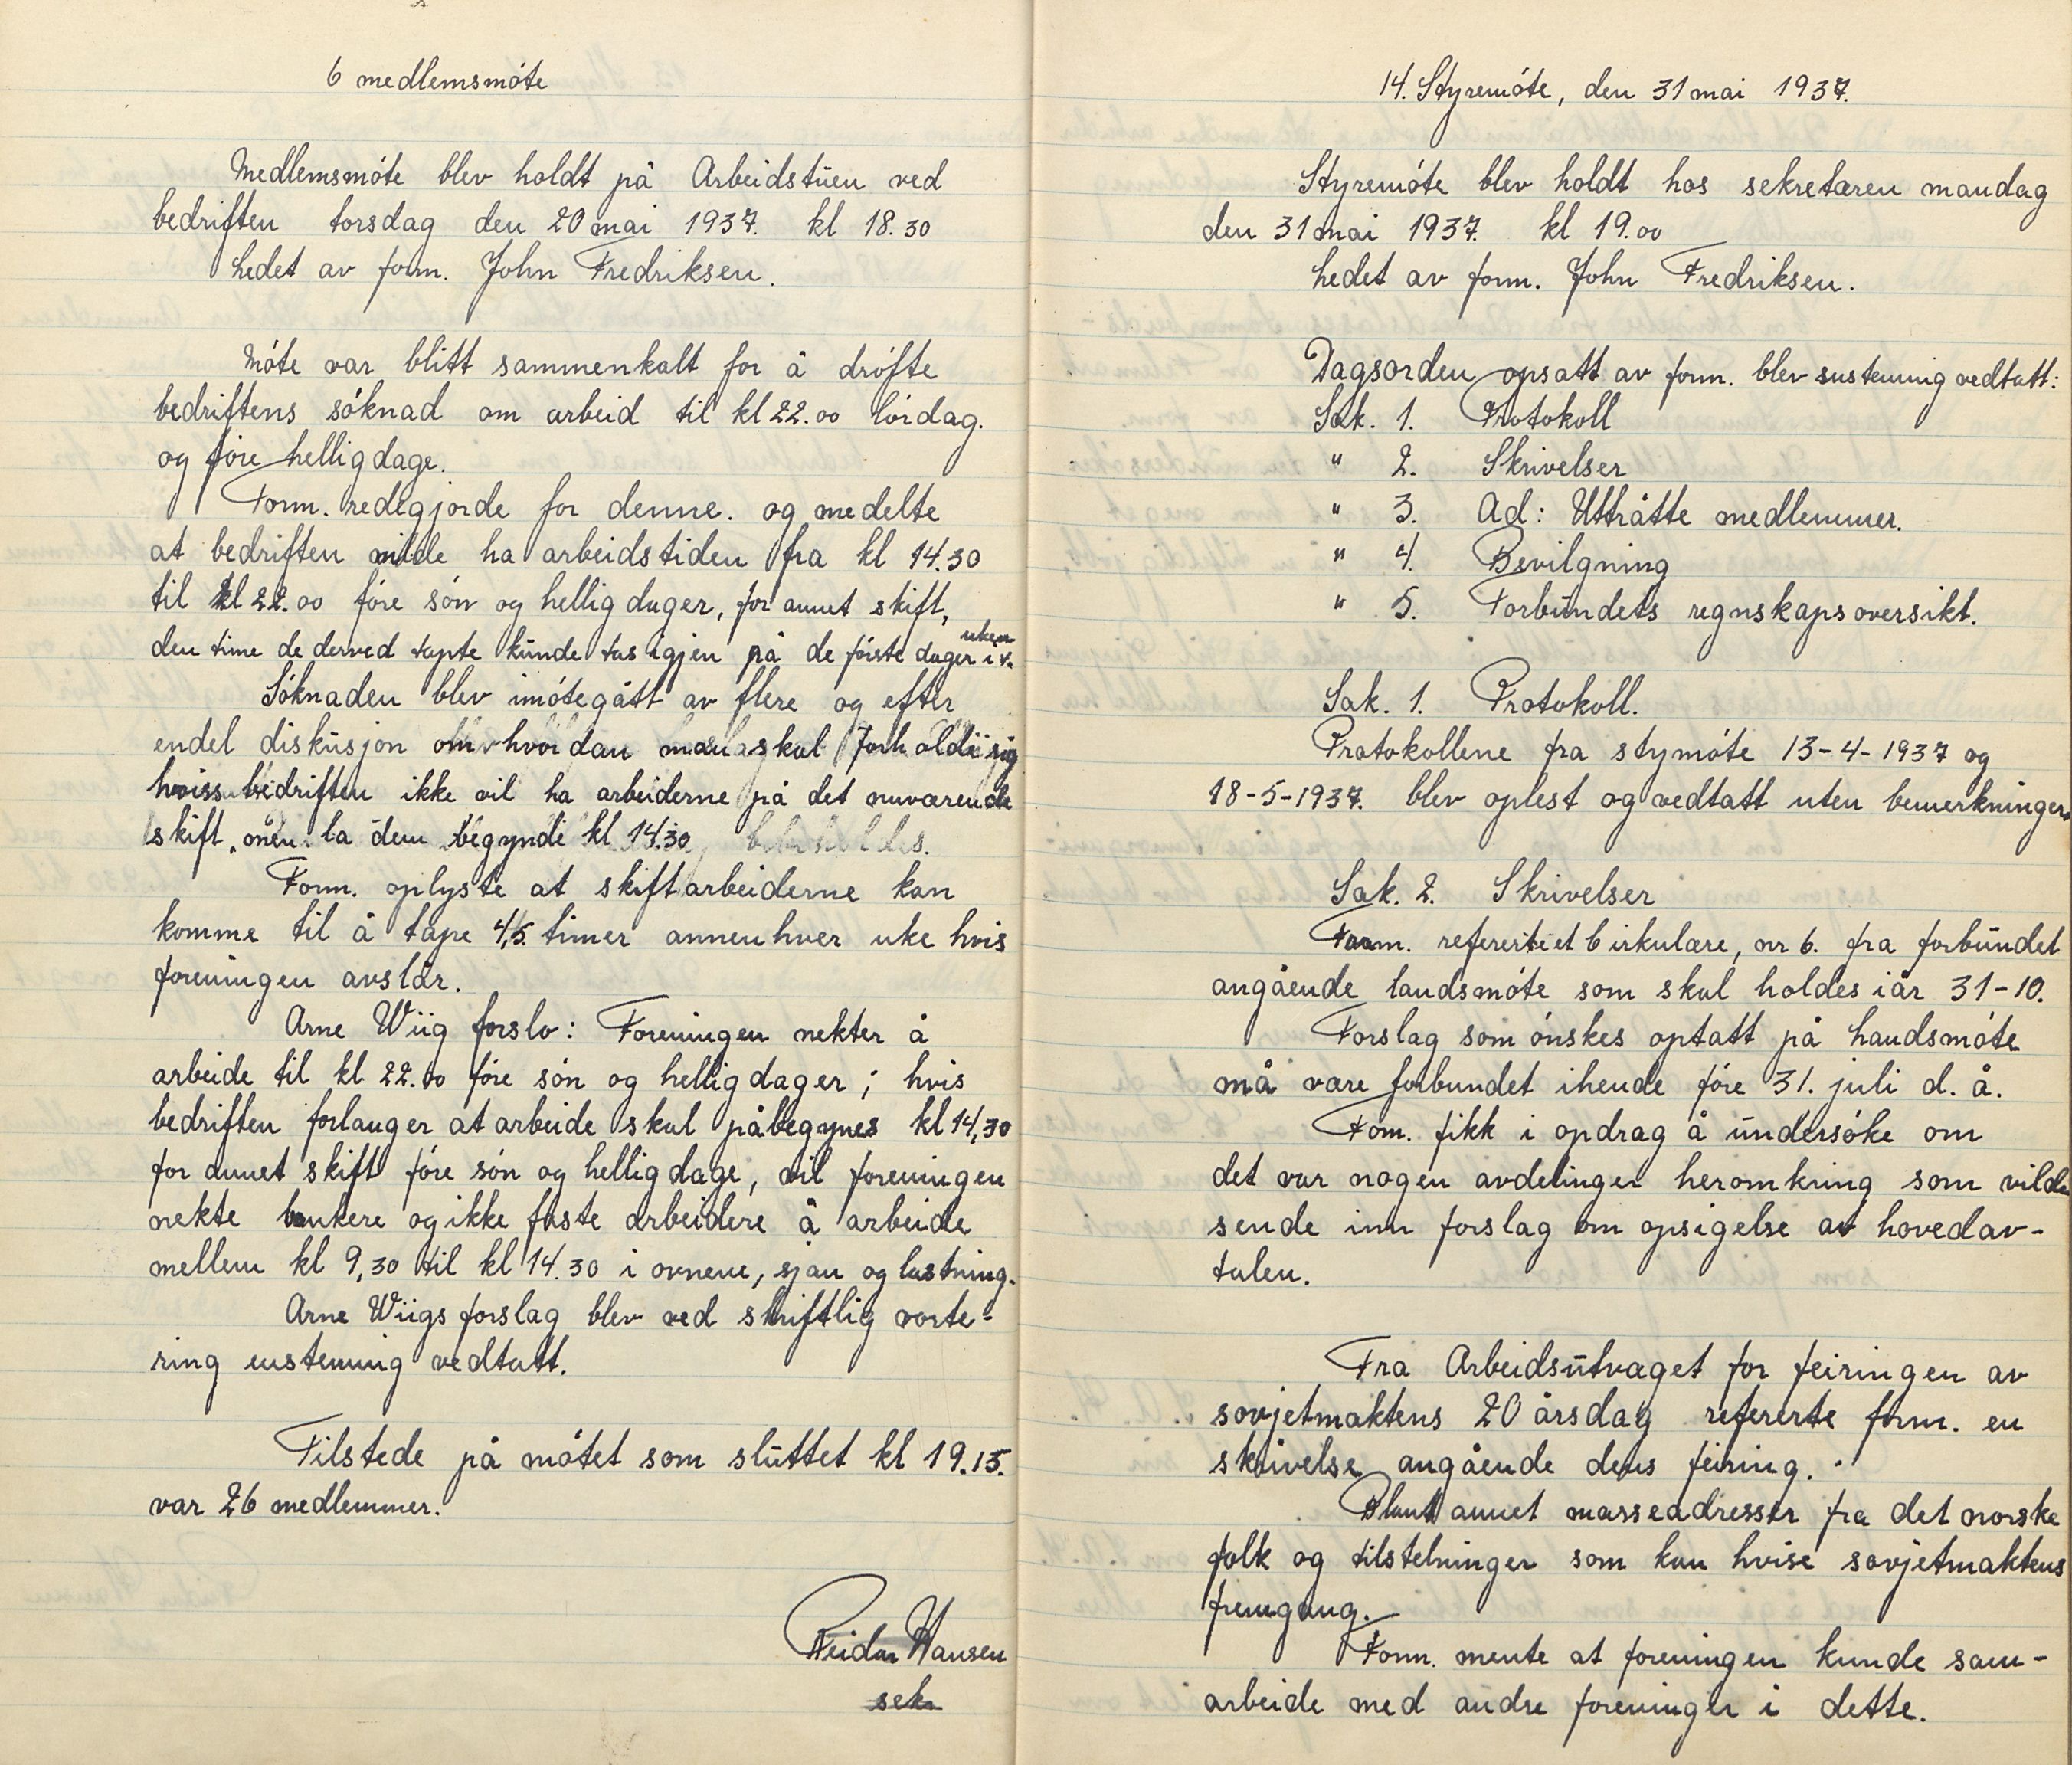 6 medlemsmöte
Medlemsmöte blev holdt på Arbeidstuen ved
bedriften torsdag den 20 mai 1937. kl 18.30
ledet av form. John Fredriksen.
Möte var blitt sammenkalt for å dröfte
bedriftens söknad om arbeid til kl 22.00 lördag.
og före helligdage.
Form. redegjorde for denne. og medelte
at bedriften vilde ha arbeidstiden fra kl 14.30
til kl 22.00 före sön og helligdager, for annet skift,
den time de derved tapte kunde tas igjen på de förste dager i uken
Söknaden blev imötegått av flere og efter
endel diskusjon om hvordan man skal forholde sig
hviss bedriften ikke vil ha arbeiderne på det nuværende
skift, men la dem begynde kl 14.30
Form. oplyste at skiftarbeiderne kan
komme til å tape 4,5 timer annenhver uke hvis
foreningen avslår.
Arne Wiig forslo: Foreningen nekter å
arbeide til kl 22.00 före sön og helligdager; hvis
bedriften forlanger at arbeide skal påbegynes kl 14,30
for annet skift före sön og helligdage, vil foreningen
nekte bankere og ikke faste arbeidere å arbeide
mellem kl 9,30 til kl 14.30 i ovnene, sjau og lastning.
Arne Wiigs forslag blev ved skriftlig vorte-
ring enstemmig vedtatt.
Tilstede på mötet som sluttet kl 19.15.
var 26 medlemmer.
Reidar Hansen
sek
14. Styremöte, den 31 mai 1937.
Styremöte blev holdt hos sekretæren mandag
den 31 mai 1937. kl 19.00
ledet av form. John Fredriksen.
Dagsorden opsatt av form. blev enstemmig vedtatt:
Sak. 1. Protokoll
" 2. Skrivelser
" 3. Ad: Uttråtte medlemmer.
" 4. Bevilgning
" 5. Forbundets regnskapsoversikt.
Sak. 1. Protokoll.
Protokollene fra stymöte 13-4-1937 og
18-5-1937. blev oplest og vedtatt uten bemerkninger.
Sak. 2. Skrivelser
Form. refererte et cirkulære, nr 6. fra forbundet
angående landsmöte som skal holdes iår 31-10.
Forslag som önskes optatt på landsmöte
må være forbundet ihende före 31. juli d. å.
Fom. fikk i opdrag å undersöke om
det var nogen avdelinger heromkring som vilde
sende inn forslag om opsigelse av hovedav-
talen.
Fra Arbeidsutvaget for feiringen av
sovjetmaktens 20 årsdag refererte form. en
skrivelse angående dens feiring.
Blant annet masseadresser fra det norske
folk og tilstelninger som kan hvise sovjetmaktens
fremgang.
Form. mente at foreningen kunde sam-
arbeide med andre foreninger i dette.